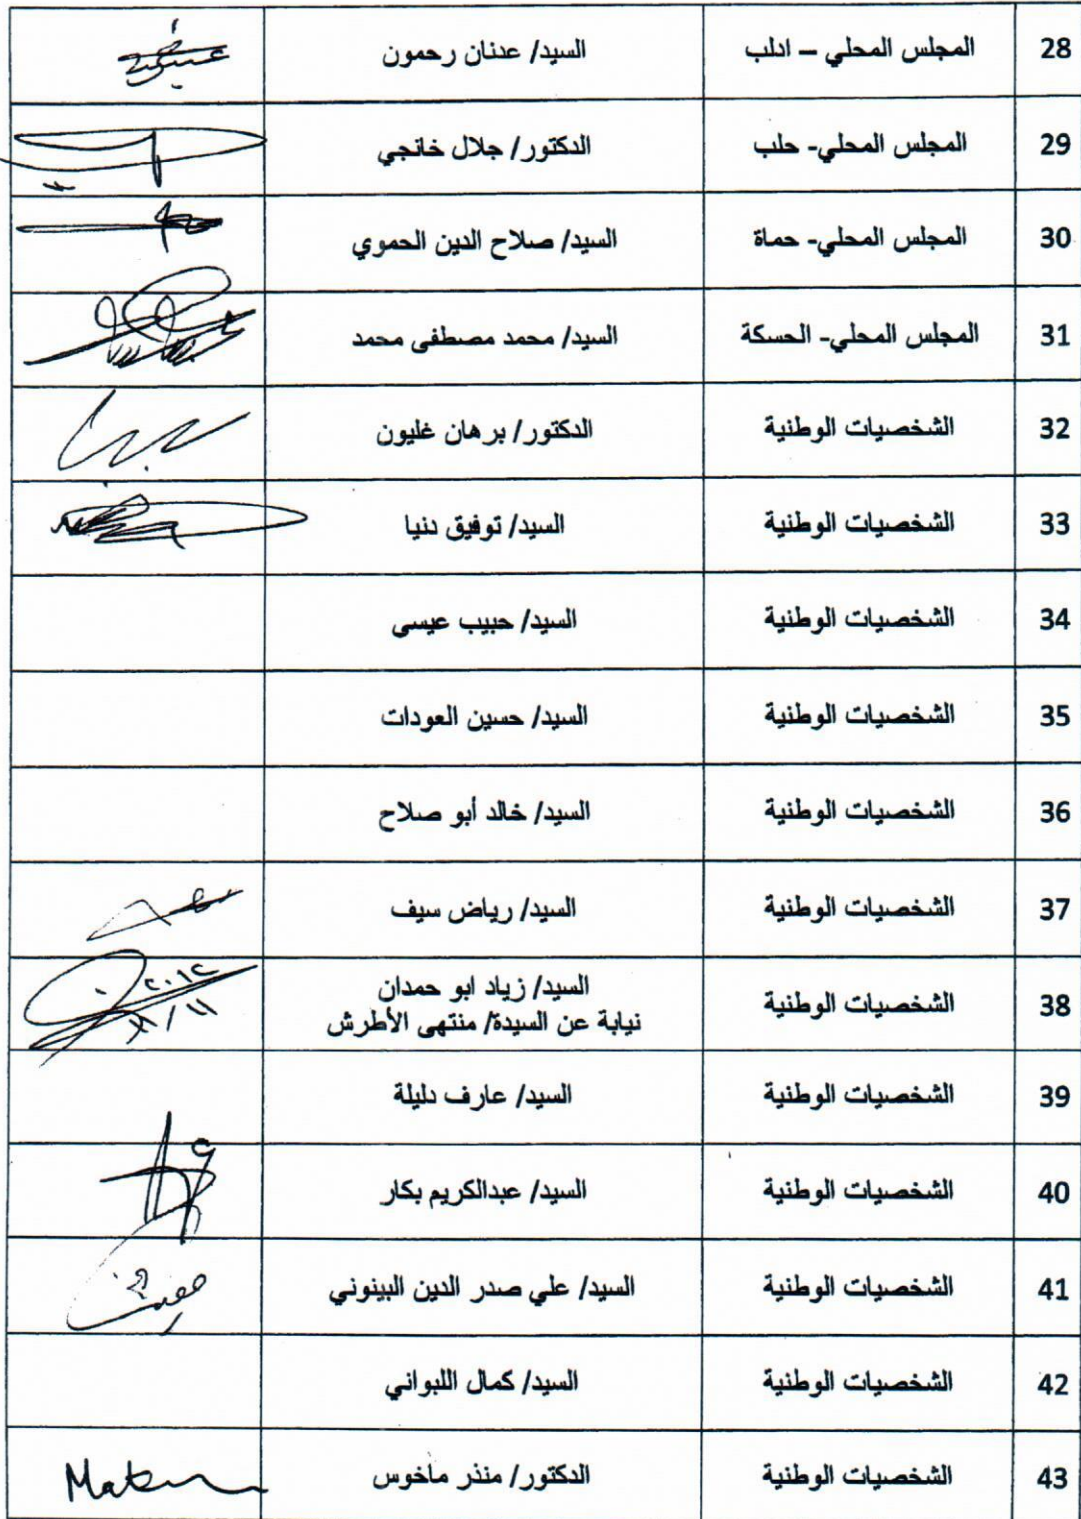 28 المجلس المحلي – ادلب السيد/ عدنان رحمون
29 المجلس المحلي- حلب الدكتور/ جلال خانجي
30 المجلس المحلي- حماة السيد/ صلاح الدين الحموي
31 المجلس المحلي- الحسكة السيد/ محمد مصطفى محمد
32 الشخصيات الوطنية الدكتور/ برهان غليون
33 الشخصيات الوطنية السيد/ توفيق دنيا
34 الشخصيات الوطنية السيد/ حبيب عيسى
35 الشخصيات الوطنية السيد/ حسين العودات
36 الشخصيات الوطنية السيد/ خالد أبو صلاح
37 الشخصيات الوطنية السيد/ رياض سيف
38 الشخصيات الوطنية السيد/ زياد ابو حمدان
نيابة عن السيدة/ منتهى الأطرش
٢٠١٢
39 الشخصيات الوطنية السيد/ عارف دليلة
40 الشخصيات الوطنية السيد/ عبدالكريم بكار
41 الشخصيات الوطنية السيد/ علي صدر الدين البينوني
42 الشخصيات الوطنية السيد/ كمال اللبواني
43 الشخصيات الوطنية الدكتور/ منذر ماخوس